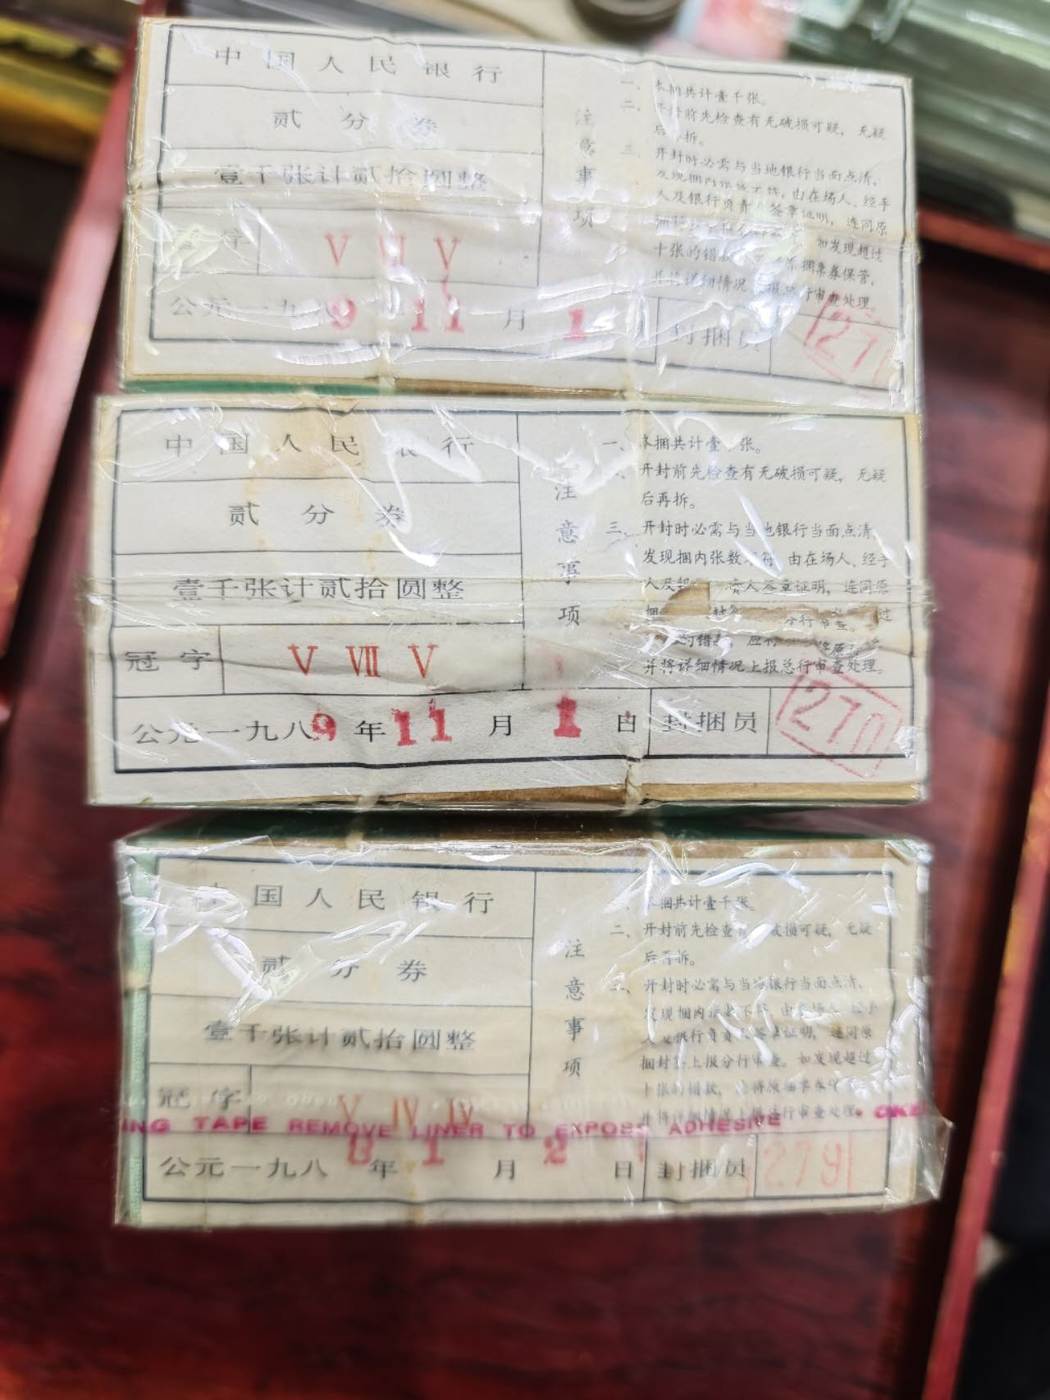 中国人民银行
贰分券
壹千张计贰拾圆整
字
V V
公元一九八9 11月1
封捆员
27
注意事项
一、本捆共计壹千张。
二、开封前先检查有无破损可疑，无疑
后再拆。
三、开封时必需与当地银行当面点清，
由在场人、经手
人及银行负责人签章证明，连同原
如发现超过
十张的错款
原捆票券保管，
并将详细情况上报总行审查处理。
中国人民银行
贰分券
壹千张计贰拾圆整
冠字
V VII V
公元一九八9年11月1日
封捆员
270
注意事项
一、本捆共计壹张。
开封前先检查有无破损可疑，无疑
后再拆。
三、开封时必需与当地银行当面点清，
发现捆内张数不符，由在场人、经手
人及银 责人签章证明，连同原
捆 分行审查。 过
的错款，应将 原
并将详细情况上报总行审查处理。
中国人民银行
贰分券
壹千张计贰拾圆整
冠字
V IV IV
ING TAPE REMOVE LINER TO EXPOSE ADHESIVE
公元一九八8年1月2日
封捆员
279
注意事项
一、本捆共计壹千张。
二、开封前先检查有无破损可疑，无疑
后再拆。
三、开封时必需与当地银行当面点清，
发现捆内张数不符，由在场人、经手
人及银行负责人签章证明，连同原
捆封签上报分行审查。如发现超过
十张的错款，应将原捆票券
并将详细情况上报总行审查处理。